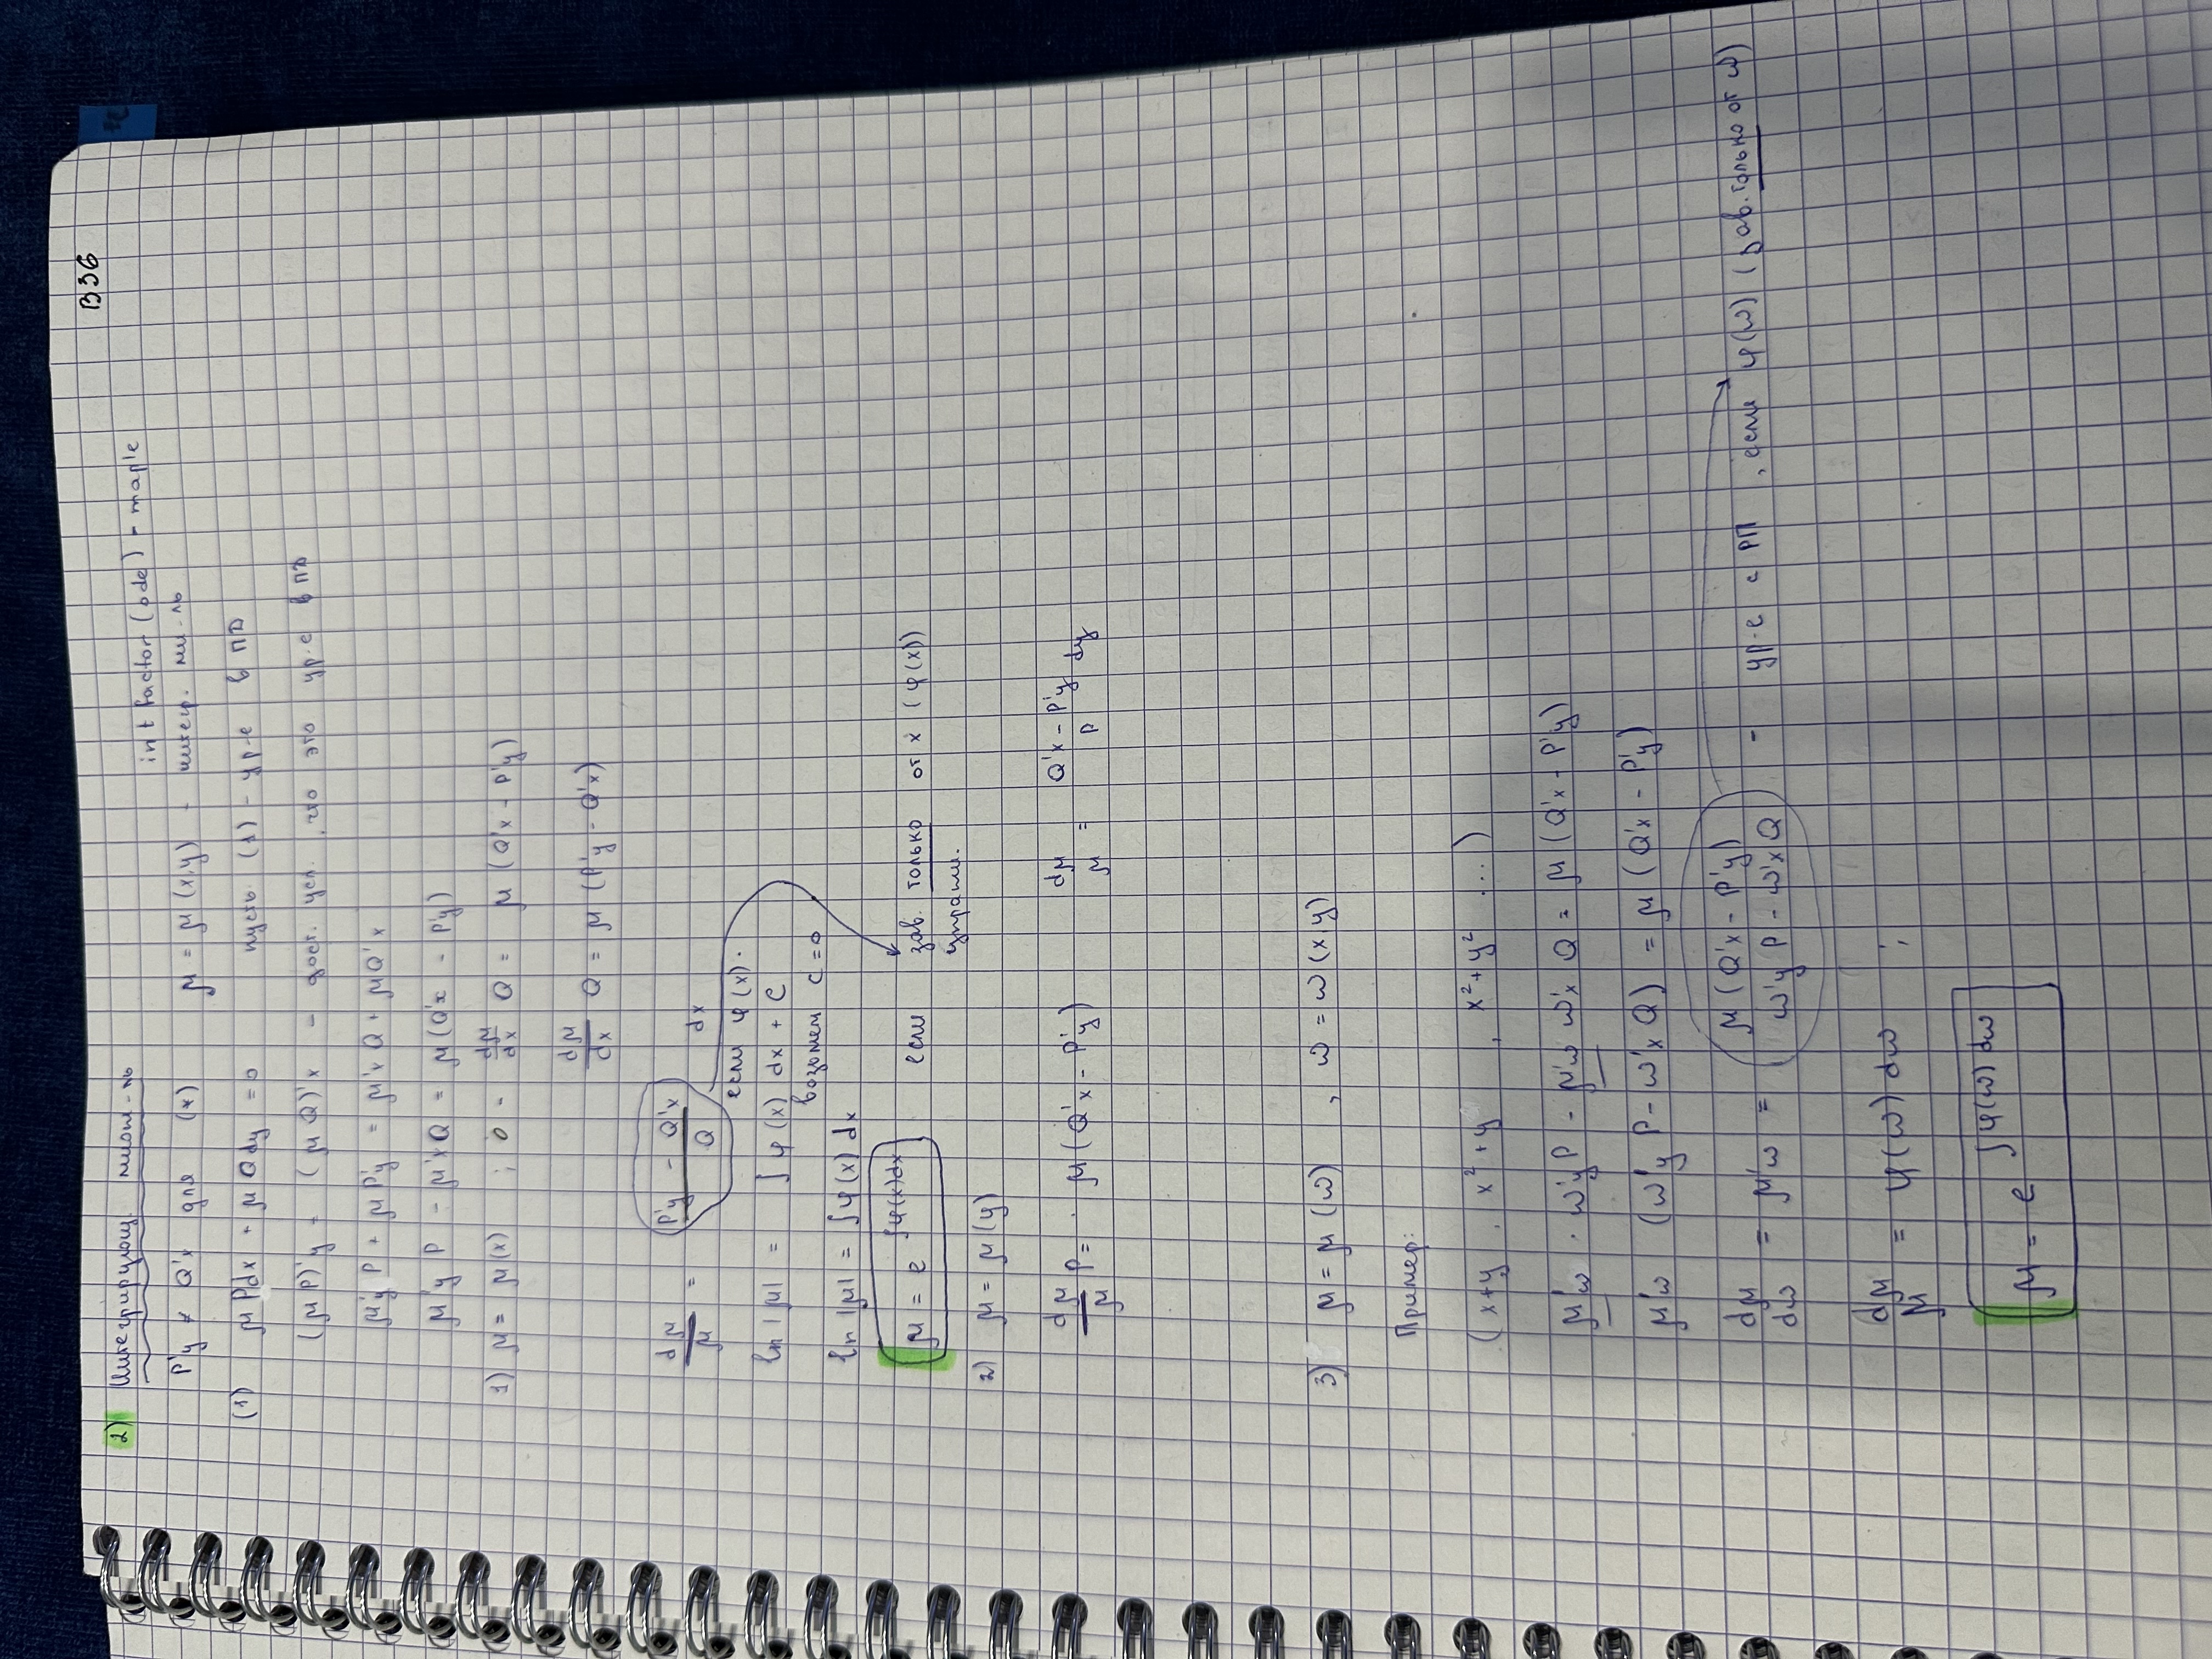 В36
2) Интегрирующ. множ-ль
intfactor(ode) - maple
P'y ≠ Q'x для (*) μ = μ(x,y) - интегр. мн-ль
(1) μPdx + μQdy = 0 пусть (1) - ур-е в ПД
(μP)'y = (μQ)'x - дост. усл., что это ур-е в ПД
μ'y P + μP'y = μ'x Q + μQ'x
μ'y P - μ'x Q = μ(Q'x - P'y)
1) μ = μ(x) ; 0 - dμ/dx Q = μ(Q'x - P'y)
dμ/dx Q = μ(P'y - Q'x)
dμ/μ = (P'y - Q'x)/Q dx
если φ(x).
ln|μ| = ∫φ(x) dx + C
возьмем C = 0
ln|μ| = ∫φ(x) dx
μ = e^∫φ(x)dx если зав. только от x (φ(x))
2) μ = μ(y)
dμ/μ P = μ(Q'x - P'y) dμ/μ = (Q'x - P'y)/P dy
3) μ = μ(ω), ω = ω(x,y)
Пример:
(x+y, x²+y, x²+y² ...)
μ'ω · ω'y P - μ'ω ω'x Q = μ(Q'x - P'y)
μ'ω (ω'y P - ω'x Q) = μ(Q'x - P'y)
dμ/dω = μ'ω = μ(Q'x - P'y)/(ω'y P - ω'x Q) - ур-е с РП, если φ(ω) (зав. только от ω)
dμ/μ = φ(ω) dω ;
μ = e^∫φ(ω) dω